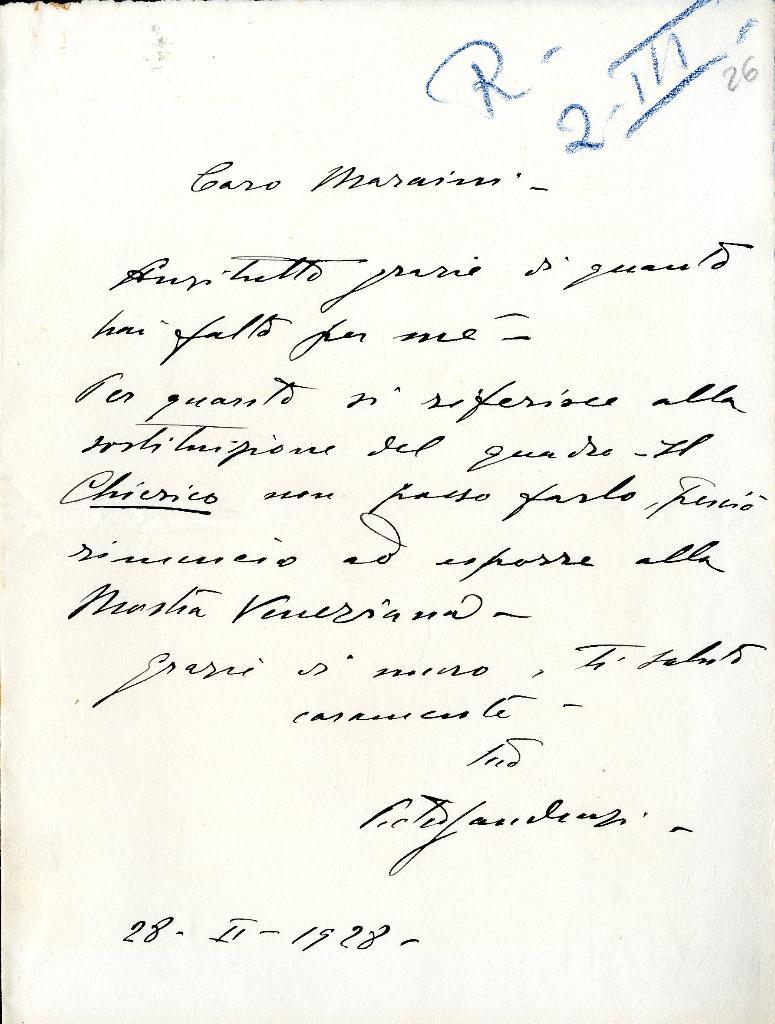 R.
2-III-
26
Caro Maraini -
Anzitutto grazie di quanto
hai fatto per me -
Per quanto si riferisce alla
sostituizione del quadro - Il
Chierico non posso farlo, perciò
rinuncio ad esporre alla
Mostra Veneziana -
Grazie di nuovo, ti saluto
caramente -
tuo
Pietro Gaudenzi -
28 - II - 1928 -